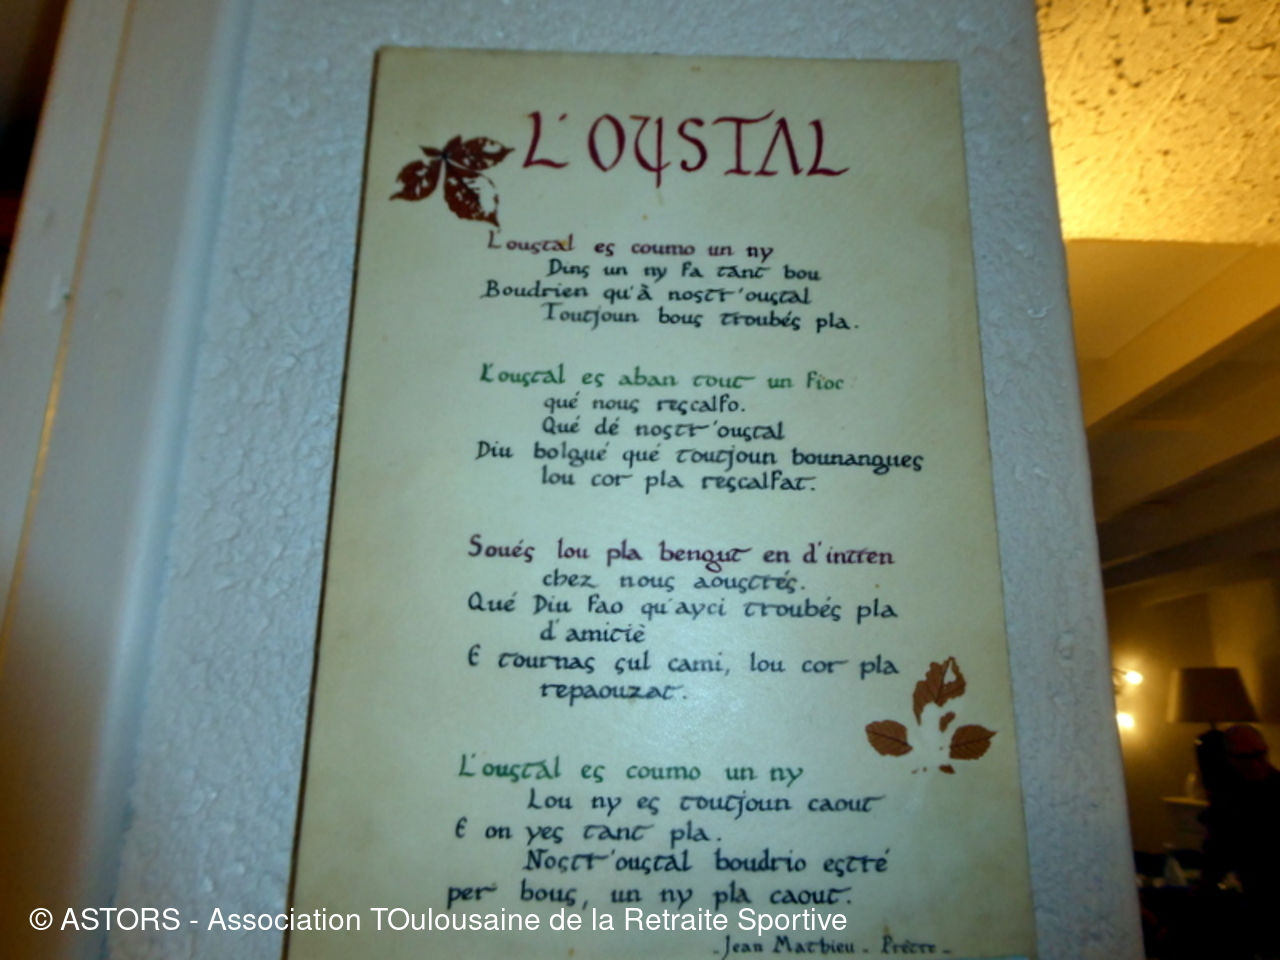 L'OUSTAL
L'oustal es coumo un ny
Dins un ny fa tant bou
Boudrien qu'à nostr'oustal
Toutjoun bous troubés pla.
L'oustal es aban tout un fioc
qué nous rescalfo.
Qué dé nostr'oustal
Diu bolgué qué toutjoun bounangues
lou cor pla rescalfat.
Soués lou pla bengut en d'intren
chez nous aoustrés.
Qué Diu fao qu'ayci troubés pla
d'amitiè
E tournas sul cami, lou cor pla
repaouzat.
L'oustal es coumo un ny
Lou ny es toutjoun caout
E on yes tant pla.
Nostr'oustal boudrio estré
per bous, un ny pla caout.
- Jean Mathieu - Prêtre -
© ASTORS - Association TOulousaine de la Retraite Sportive